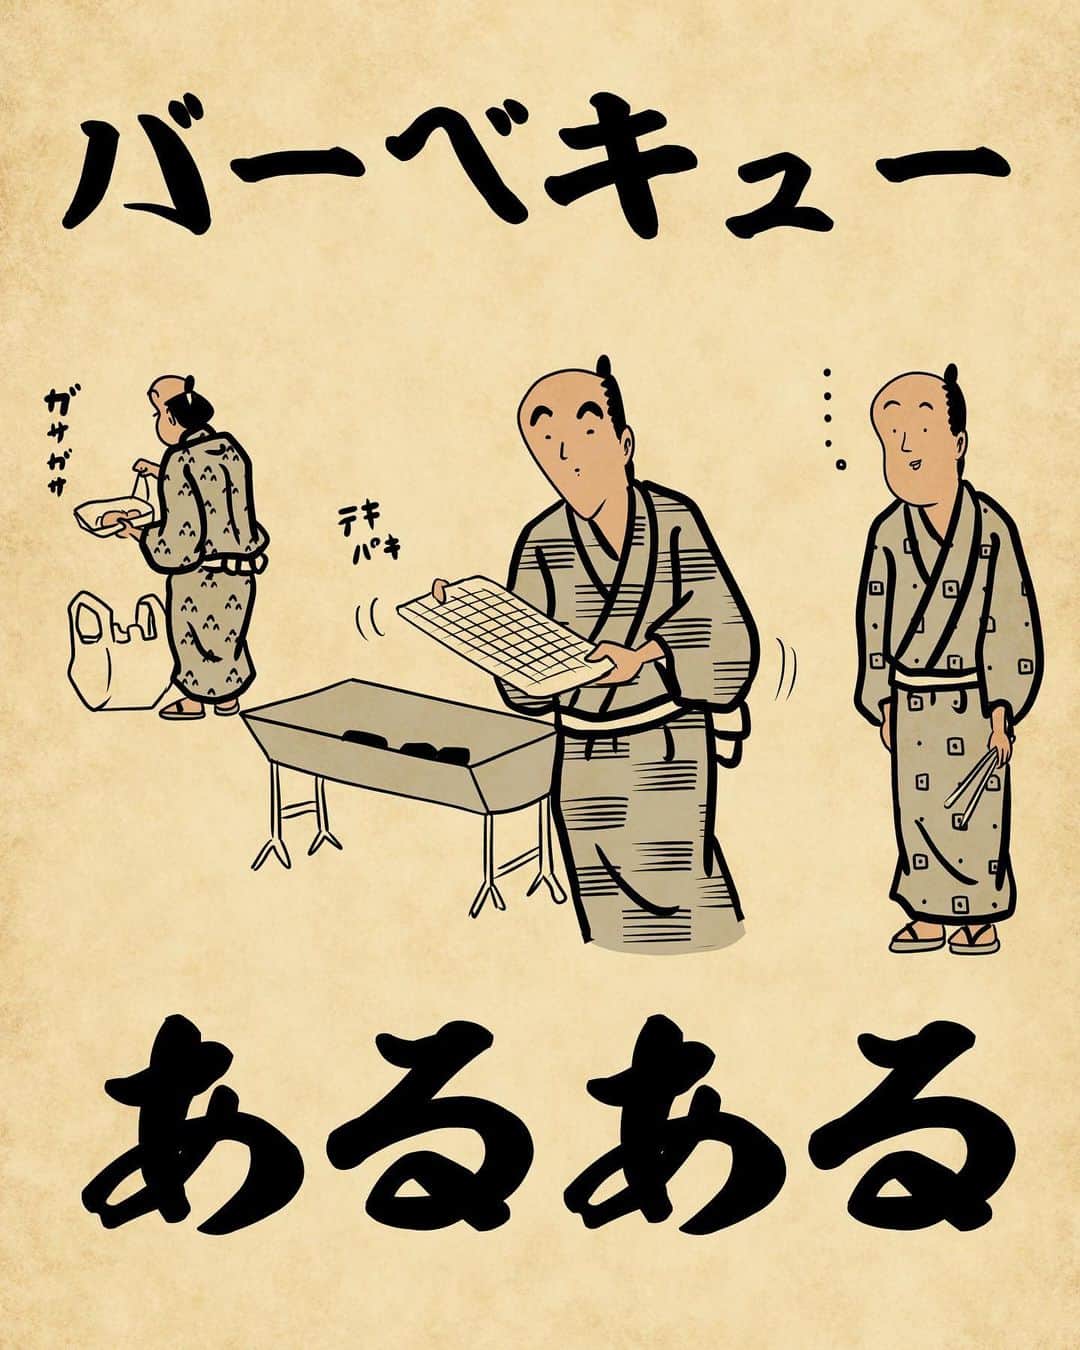 バーベキュー
ガサガサ
テキ
パキ
・・・・。
あるある